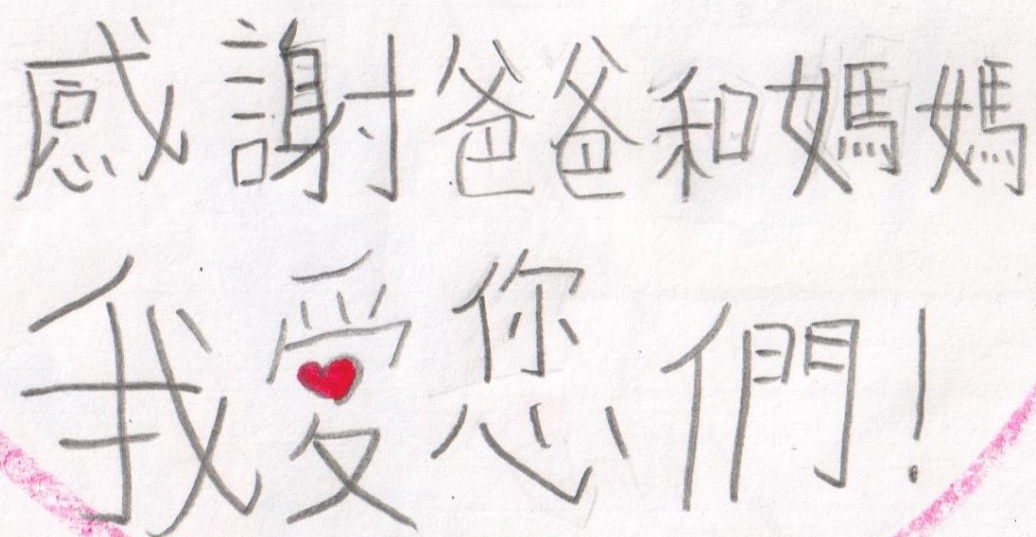 感謝爸爸和媽媽
我愛您們!